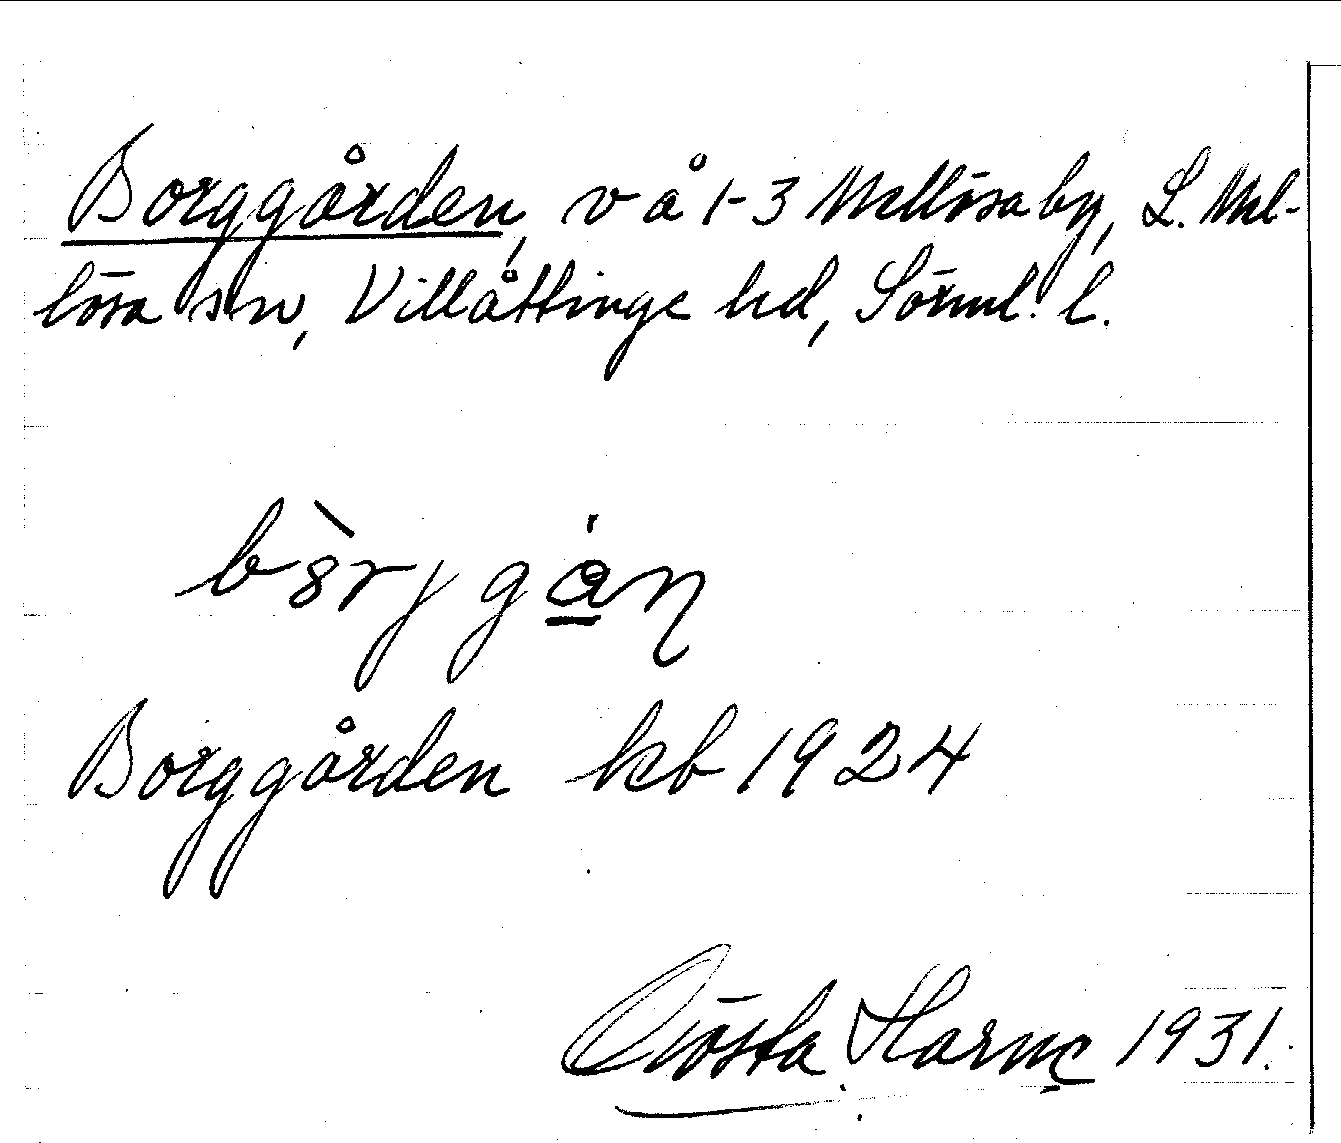 Borggården, v å 1-3 Mellösa by, L. Mel-
lösa sn, Villåttinge hd, Sörml. l.
Borggården kb 1924
Gösta Harne 1931.